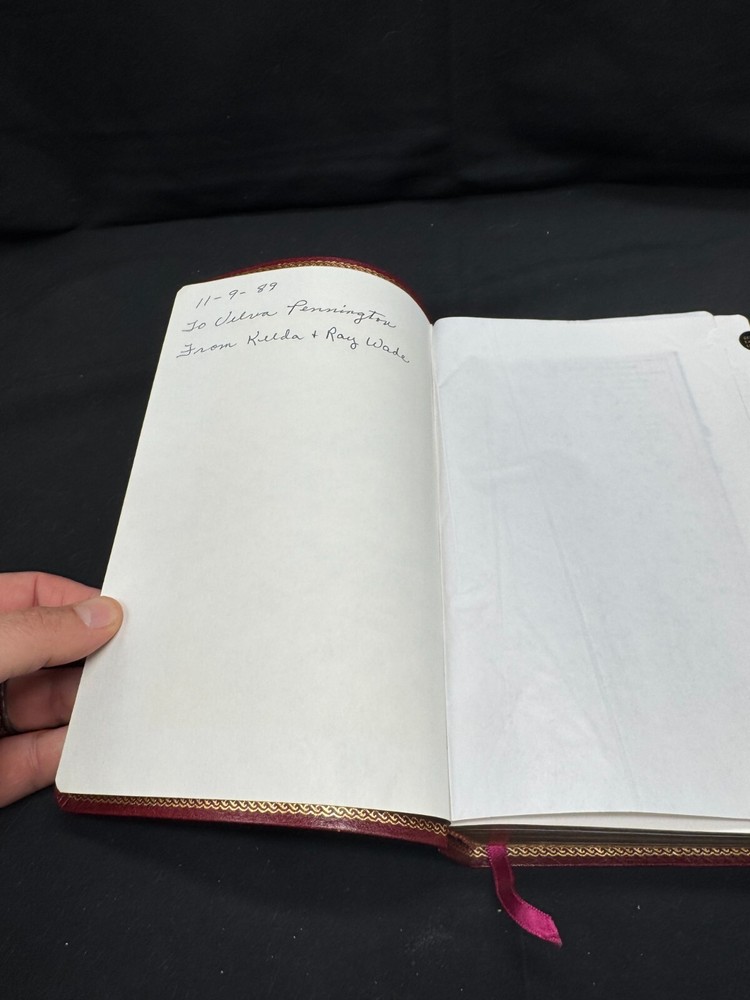 11-9-89
To Velva Pennington
From Kelda + Ray Wade